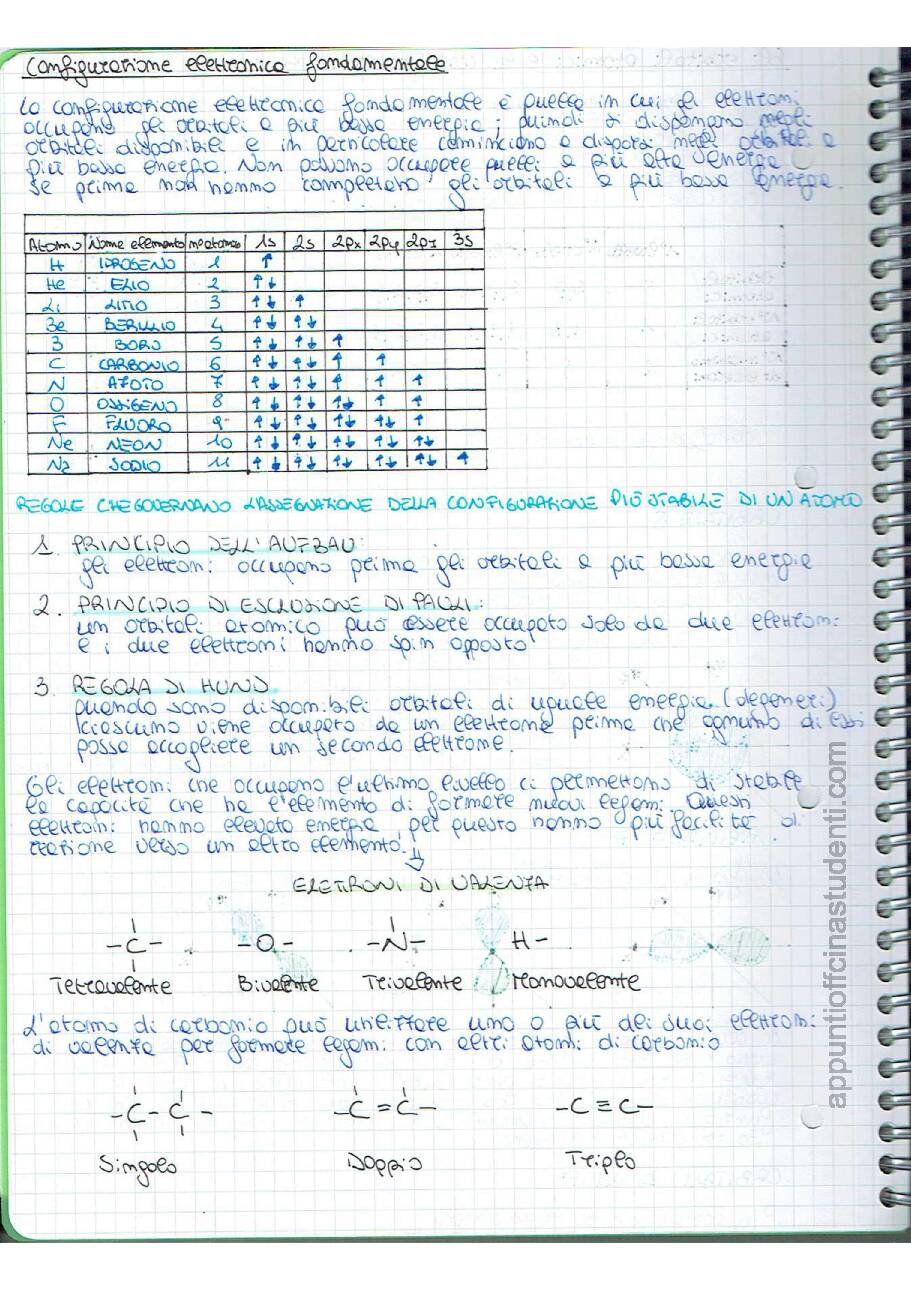 Configurazione elettronica fondamentale
La configurazione elettronica fondamentale è quella in cui gli elettroni
occupano gli orbitali a più bassa energia; quindi si dispongono negli
orbitali disponibili e in particolare cominciano a disporsi negli orbitali a
più bassa energia. Non possono occupare quelli a più alta energia
se prima non hanno completato gli orbitali a più bassa energia.
Atomo Nome elemento n° atomico 1s 2s 2px 2py 2pz 3s
H IDROGENO 1 ↑
He ELIO 2 ↑↓
Li LITIO 3 ↑↓ ↑
Be BERILLIO 4 ↑↓ ↑↓
B BORO 5 ↑↓ ↑↓ ↑
C CARBONIO 6 ↑↓ ↑↓ ↑ ↑
N AZOTO 7 ↑↓ ↑↓ ↑ ↑ ↑
O OSSIGENO 8 ↑↓ ↑↓ ↑↓ ↑ ↑
F FLUORO 9 ↑↓ ↑↓ ↑↓ ↑↓ ↑
Ne NEON 10 ↑↓ ↑↓ ↑↓ ↑↓ ↑↓
Na SODIO 11 ↑↓ ↑↓ ↑↓ ↑↓ ↑↓ ↑
REGOLE CHE GOVERNANO L'ASSEGNAZIONE DELLA CONFIGURAZIONE PIÙ STABILE DI UN ATOMO
1. PRINCIPIO DELL'AUFBAU:
gli elettroni occupano prima gli orbitali a più bassa energia
2. PRINCIPIO DI ESCLUSIONE DI PAULI:
un orbitali atomico può essere occupato solo da due elettroni
e i due elettroni hanno spin opposto
3. REGOLA DI HUND
quando sono disponibili orbitali di uguale energia (degeneri)
ciascuno viene occupato da un elettrone prima che ognuno di essi
possa accogliere un secondo elettrone.
Gli elettroni che occupano l'ultimo livello ci permettono di stabile
la capacità che ha l'elemento di formare nuovi legami. Questi
elettroni hanno elevata energia per questo hanno più facilità di
reazione verso un altro elemento.
ELETTRONI DI VALENZA
-C- -O- -N- H-
Tetravalente Bivalente Trivalente Monovalente
L'atomo di carbonio può utilizzare uno o più dei suoi elettroni
di valenza per formare legami con altri atomi di carbonio
-C-C- -C=C- -C≡C-
Singolo Doppio Triplo
appuntioffcinastudenti.com